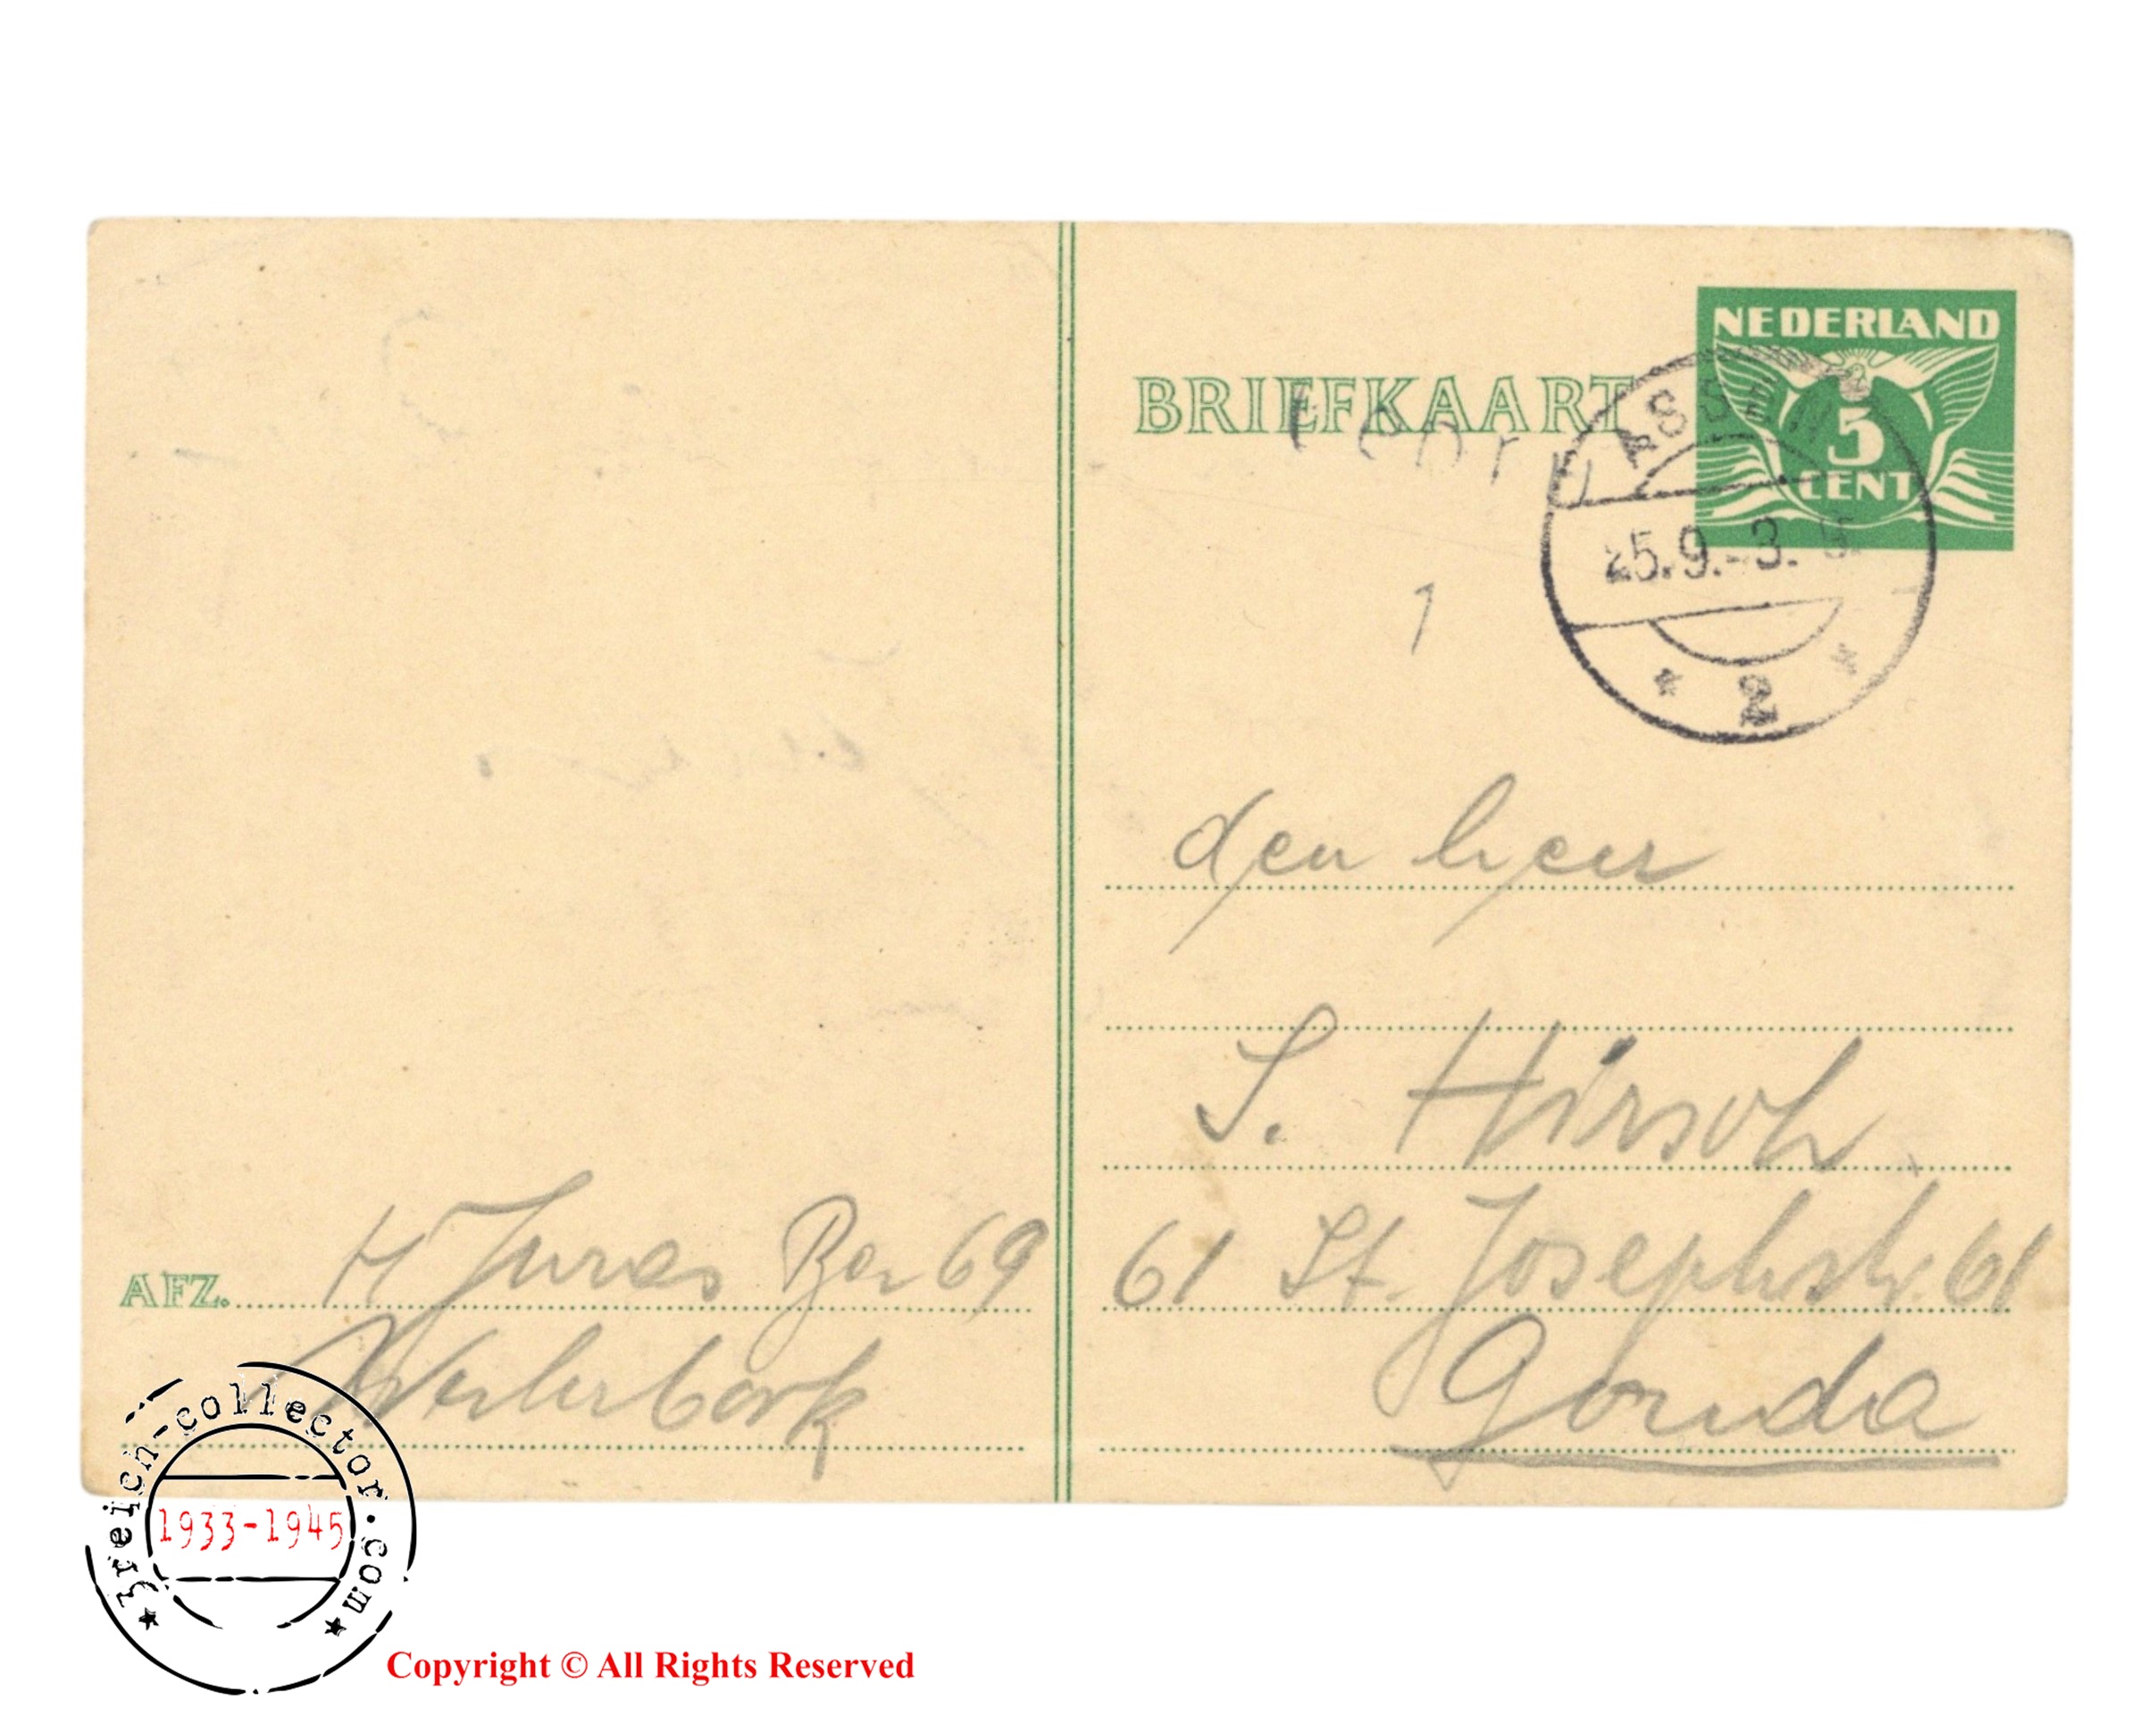 BRIEFKAART
NEDERLAND
5
CENT
ASSEN
25.9.-3.
2
1
den heer
S. Hirsch
61 St. Josephstr. 61
Gouda
AFZ. H Juras Bar 69
Westerbork
3reich-collector.com
1933-1945
Copyright © All Rights Reserved